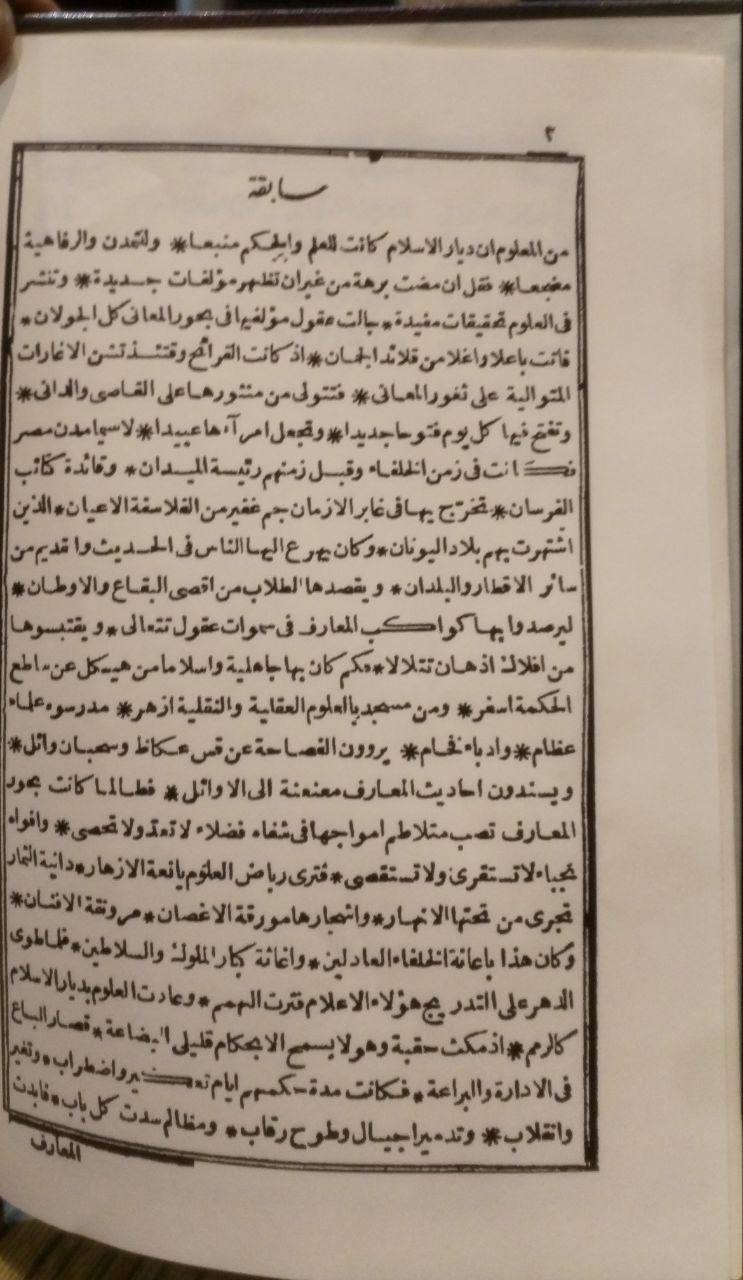 ٢
سابقة
من المعلوم ان ديار الاسلام كانت للعلم والحكم منبعا * ولتمدن والرفاهية
مفجعا * فقل ان مضت برهة من غير ان تظهر مؤلفات جديدة * وتنشر
فى العلوم تحقيقات مفيدة * جالت عقول مؤلفيها فى بحور المعانى كل الجولان *
فاتت باعلا واغلا من قلائد الجمان * اذ كانت القرائح وقتئذ تشن الاغارات
المتوالية على ثغور المعانى * فتتولى من منثورها على القاصى والدانى *
وتفتح فيها كل يوم فتوحا جديدا * وتجعل امرآءها عبيدا * لا سيما مدن مصر
فكانت فى زمن الخلفاء وقبل زمنهم رئيسة الميدان * وقائدة كتائب
الفرسان * تخرّج بها فى غابر الازمان جم غفير من الفلاسفة الاعيان * الذين
اشتهرت بهم بلاد اليونان * وكان يهرع اليها الناس فى الحديث والقديم من
سائر الاقطار والبلدان * ويقصدها الطلاب من اقصى البقاع والاوطان *
ليرصدوا بها كواكب المعارف فى سموات عقول تتعالى * ويقتبسوها
من افلاك اذهان تتلالا * فكم كان بها جاهلية واسلاما من هيكل عن ساطع
الحكمة اسفر * ومن مسجد بالعلوم العقلية والنقلية ازهر * مدرسوه علماء
عظام * وادباء فخام * يروون الفصاحة عن قس عكاظ وسحبان وائل *
ويسندون احاديث المعارف معنعنة الى الاوائل * فطالما كانت بحور
المعارف تصب متلاطم امواجها فى شفاء فضلاء لا تعد ولا تحصى * وافواه
نجباء لا تستقرى ولا تستقصى * فترى رياض العلوم يانعة الازهار * دانية الثمار
تجرى من تحتها الانهار * واشجارها مورقة الاغصان * مرونقة الافنان *
وكان هذا باعانة الخلفاء العادلين * واغاثة كبار الملوك والسلاطين * فلما طوى
الدهر على التدريج هؤلاء الاعلام فترت الهمم * وعادت العلوم بديار الاسلام
كالرمم * اذ مكث حقبة وهو لا يسمح الا بحكام قليلى البضاعة * قصار الباع
فى الادارة والبراعة * فكانت مدة حكمهم ايام تعكير واضطراب * وتغير
وانقلاب * وتدمير اجيال وطوح رقاب * ومظالم سدت كل باب * فابدت
المعارف